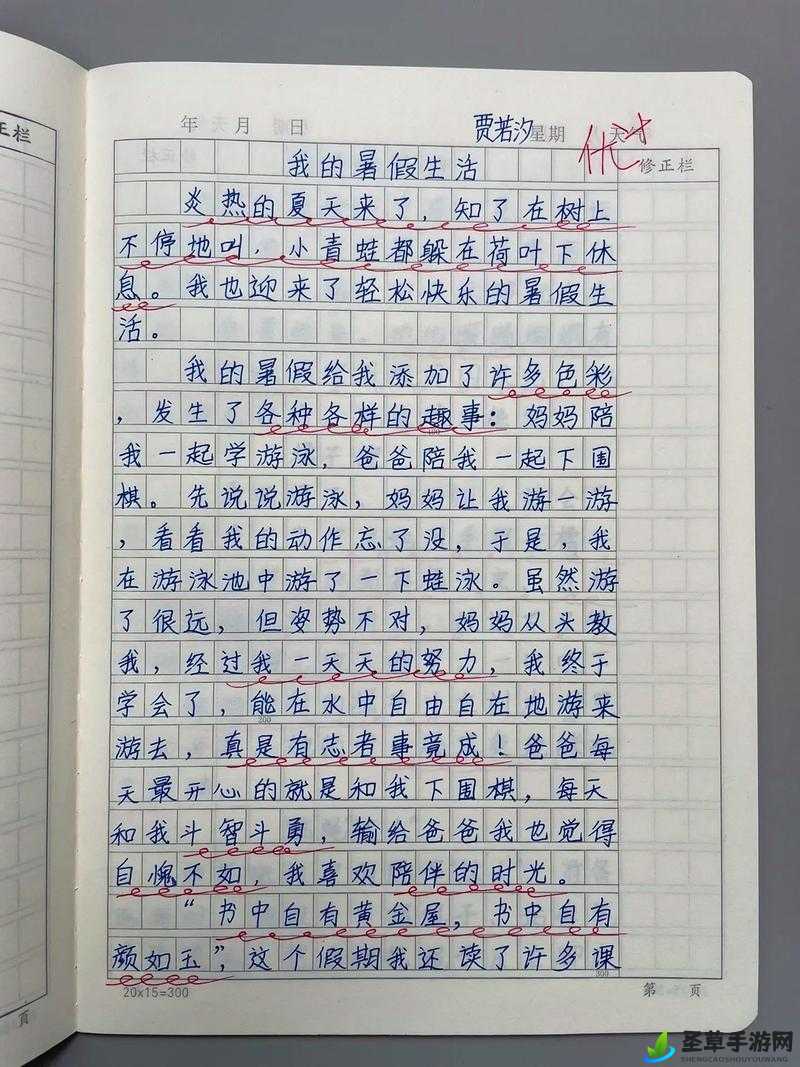 正栏
年 月 日 贾若汐 星期 天气 优+
我的暑假生活 修正栏
炎热的夏天来了，知了在树上
不停地叫，小青蛙都躲在荷叶下休
息。我也迎来了轻松快乐的暑假生
活。
我的暑假给我添加了许多色彩
，发生了各种各样的趣事：妈妈陪
我一起学游泳，爸爸陪我一起下围
棋。先说说游泳，妈妈让我游一游
，看看我的动作忘了没，于是，我
在游泳池中游了一下蛙泳。虽然游
了很远，但姿势不对，妈妈从头教
我，经过我一天天的努力，我终于
学会了，能在水中自由自在地游来
200
游去，真是有志者事竟成！爸爸每
天最开心的就是和我下围棋，每天
和我斗智斗勇，输给爸爸我也觉得
自愧不如，我喜欢陪伴的时光。
“书中自有黄金屋，书中自有
颜如玉”，这个假期我还读了许多课
300
20×15=300 第 页
页
圣草手游网
SHENGCAOSHOUYOUWANG